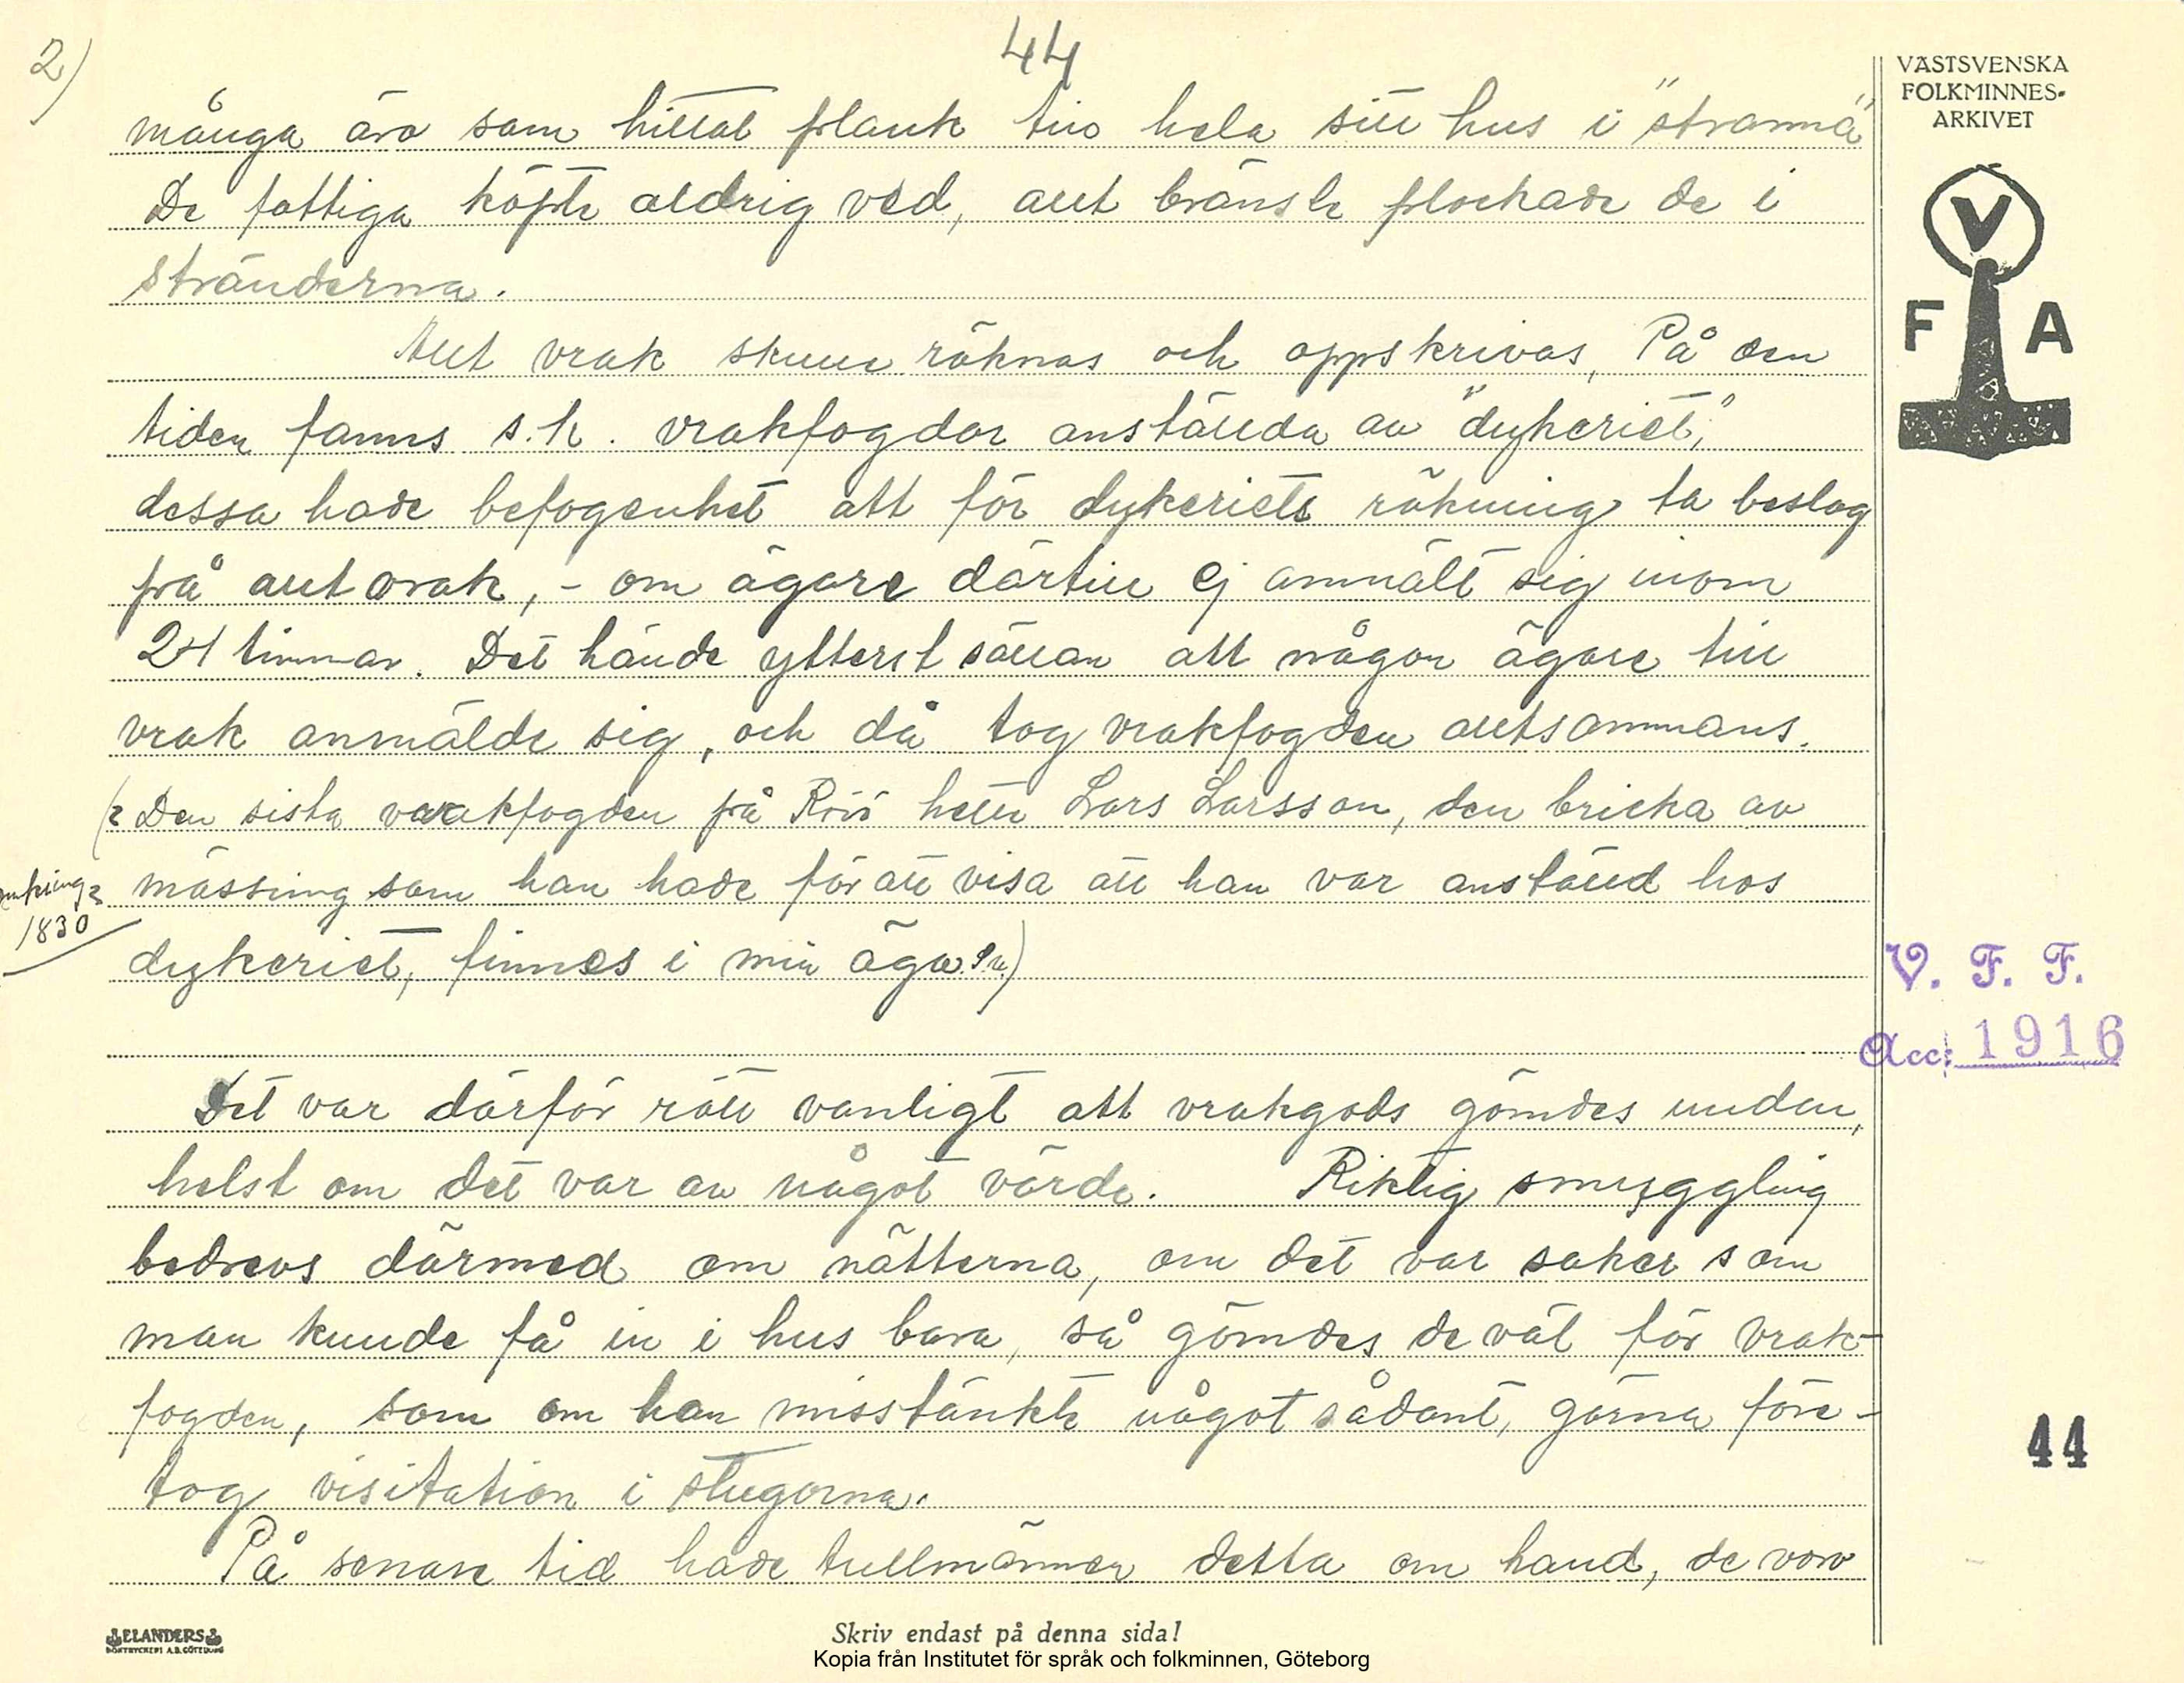 2)
44
många äro som hittat plank till hela sitt hus i "stranna"
De fattiga köpte aldrig ved, allt bränsle plockade de i
stränderna.
Allt vrak skulle räknas och oppskrivas, På den
tiden fanns s.k. vrakfogdar anställda av "dykeriet,"
dessa hade befogenhet att för dykeriets räkning ta beslag
på allt vrak, - om ägare därtill ej anmält sig inom
24 timmar. Det hände ytterst sällan att någon ägare till
vrak anmälde sig, och då tog vrakfogden alltsammans.
(Den sista vrakfogden på Rörö hette Lars Larsson, den bricka av
omkring
1830
mässing som han hade för att visa att han var anställd hos
dykeriet, finnes i min ägo.)
Det var därför rätt vanligt att vrakgods gömdes undan,
helst om det var av något värde. Riktig smuggling
bedrevs därmed om nätterna, om det var saker som
man kunde få in i hus bara, så gömdes de väl för vrak-
fogden, som om han misstänkte något sådant, gärna före-
tog visitation i stugorna.
På senare tid hade tullmännen detta om hand, de voro
VÄSTSVENSKA
FOLKMINNES-
ARKIVET
V
F A
V. F. F.
Acc: 1916
44
ELANDERS
BOKTRYCKERI A.B. GÖTEBORG
Skriv endast på denna sida!
Kopia från Institutet för språk och folkminnen, Göteborg